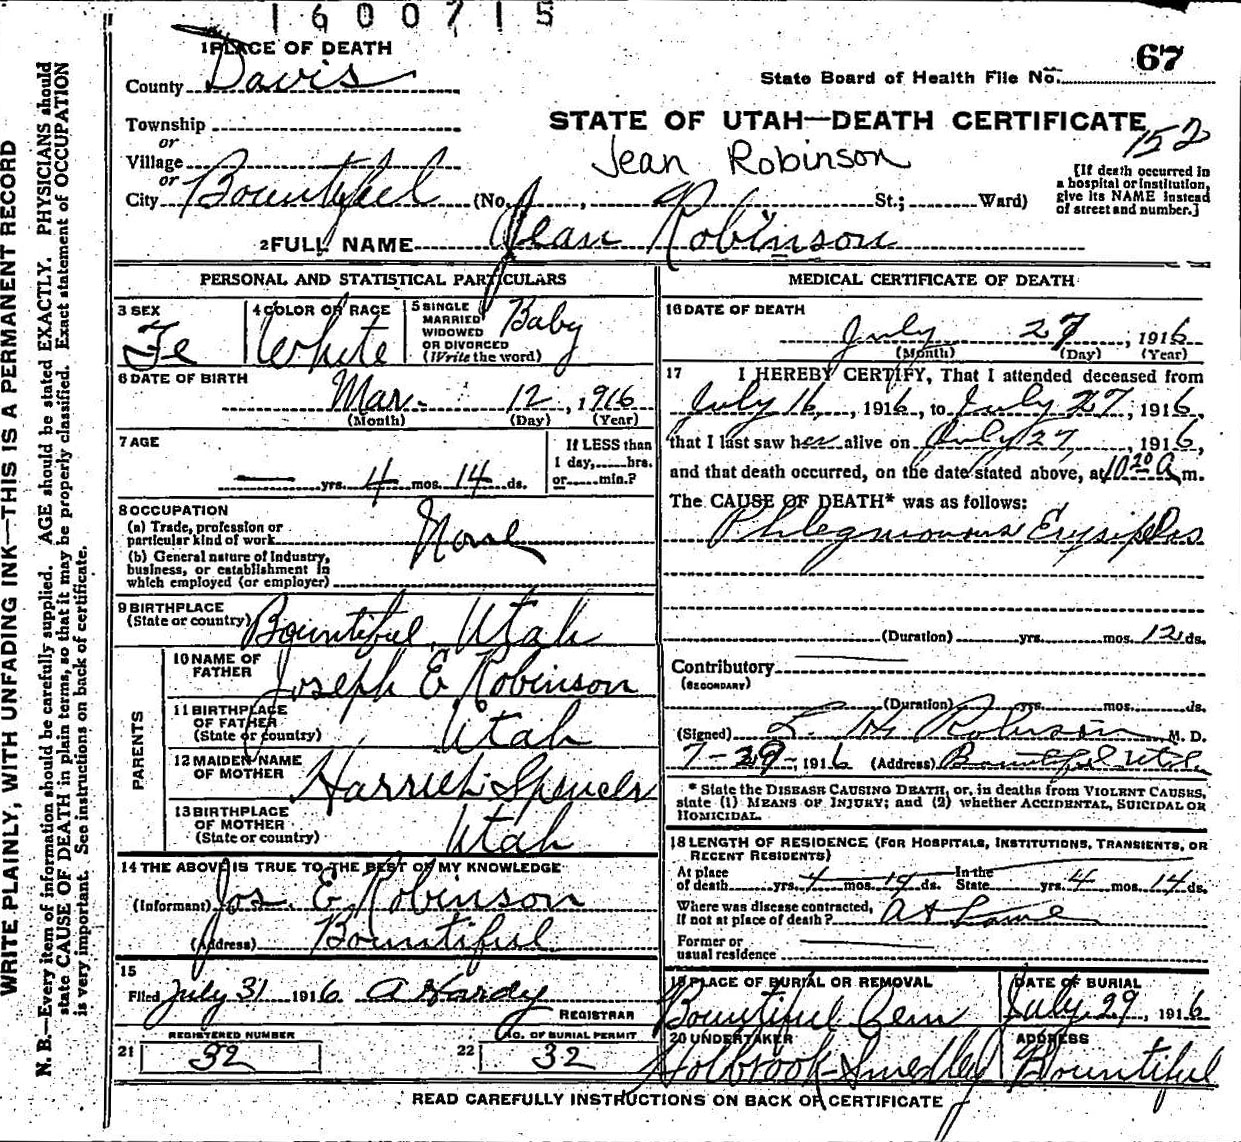 1600715
1 PLACE OF DEATH
County Davis
State Board of Health File No. 67
Township
or
Village
or
City Bountiful (No. , St.; Ward)
STATE OF UTAH—DEATH CERTIFICATE
152
Jean Robinson
[If death occurred in
a hospital or institution,
give its NAME instead
of street and number.]
2 FULL NAME Jean Robinson
PERSONAL AND STATISTICAL PARTICULARS
3 SEX
Fe
4 COLOR OR RACE
White
5 SINGLE
MARRIED
WIDOWED
OR DIVORCED
(Write the word)
Baby
6 DATE OF BIRTH
Mar. 12, 1916
(Month) (Day) (Year)
7 AGE
— yrs. 4 mos. 14 ds.
If LESS than
1 day, hrs.
or min.?
8 OCCUPATION
(a) Trade, profession or
particular kind of work
None
(b) General nature of Industry,
business, or establishment in
which employed (or employer)
9 BIRTHPLACE
(State or country) Bountiful, Utah
PARENTS
10 NAME OF
FATHER
Joseph E Robinson
11 BIRTHPLACE
OF FATHER
(State or country)
Utah
12 MAIDEN NAME
OF MOTHER
Harriet Spencer
13 BIRTHPLACE
OF MOTHER
(State or country)
Utah
14 THE ABOVE IS TRUE TO THE BEST OF MY KNOWLEDGE
(Informant) Jos. E. Robinson
(Address) Bountiful
15
Filed July 31 1916 A Hardy
REGISTRAR
REGISTERED NUMBER
21 32
NO. OF BURIAL PERMIT
22 32
MEDICAL CERTIFICATE OF DEATH
16 DATE OF DEATH
July 27, 1916
(Month) (Day) (Year)
17 I HEREBY CERTIFY, That I attended deceased from
July 16, 1916, to July 27, 1916,
that I last saw her alive on July 27, 1916,
and that death occurred, on the date stated above, at 10 20 A m.
The CAUSE OF DEATH* was as follows:
Phlegmonous Erysipelas
(Duration) yrs. mos. 12 ds.
Contributory
(SECONDARY)
(Duration) yrs. mos. ds.
(Signed) Robinson M. D.
7-29-, 1916 (Address) Bountiful Utah
* State the DISEASE CAUSING DEATH, or, in deaths from VIOLENT CAUSES,
state (1) MEANS OF INJURY; and (2) whether ACCIDENTAL, SUICIDAL OR
HOMICIDAL.
18 LENGTH OF RESIDENCE (FOR HOSPITALS, INSTITUTIONS, TRANSIENTS, OR
RECENT RESIDENTS)
At place
of death yrs. 4 mos. 14 ds.
In the
State yrs. 4 mos. 14 ds.
Where was disease contracted,
If not at place of death? At home
Former or
usual residence
19 PLACE OF BURIAL OR REMOVAL
Bountiful Cem
DATE OF BURIAL
July 29, 1916
20 UNDERTAKER
Holbrook-Smedley
ADDRESS
Bountiful
READ CAREFULLY INSTRUCTIONS ON BACK OF CERTIFICATE
WRITE PLAINLY, WITH UNFADING INK—THIS IS A PERMANENT RECORD
N. B.—Every item of information should be carefully supplied. AGE should be stated EXACTLY. PHYSICIANS should
state CAUSE OF DEATH in plain terms, so that it may be properly classified. Exact statement of OCCUPATION
is very important. See instructions on back of certificate.